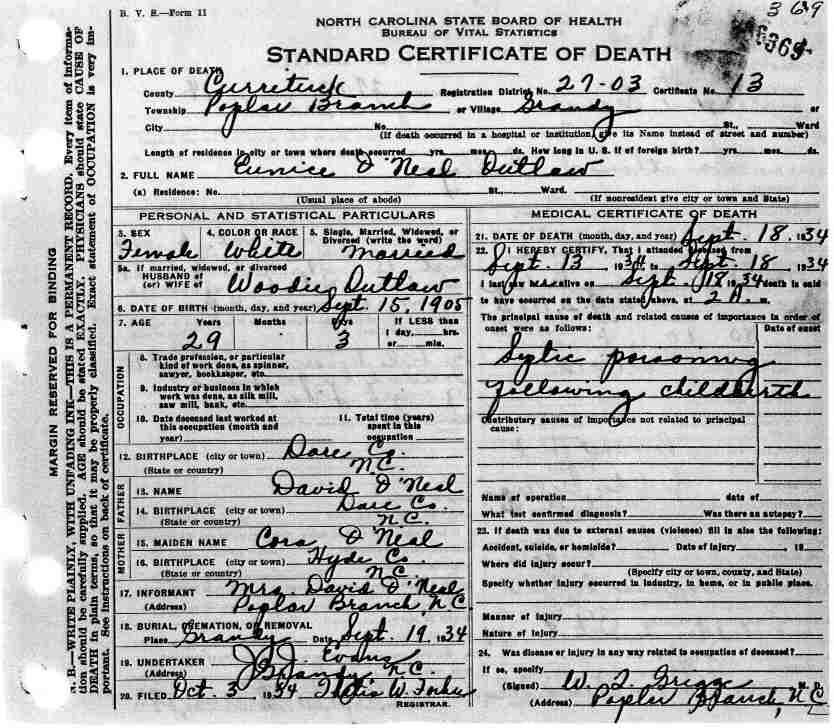 B. V. S.—Form 11
369
6365
NORTH CAROLINA STATE BOARD OF HEALTH
BUREAU OF VITAL STATISTICS
STANDARD CERTIFICATE OF DEATH
1. PLACE OF DEATH
County Currituck Registration District No. 27-03 Certificate No. 13
Township Poplar Branch or Village Grandy or
City No. St., Ward
(If death occurred in a hospital or institution, give its Name instead of street and number)
Length of residence in city or town where death occurred yrs. mos. ds. How long in U. S. if of foreign birth? yrs. mos. ds.
2. FULL NAME Eunice O'Neal Outlaw
(a) Residence: No. St., Ward.
(Usual place of abode) (If nonresident give city or town and State)
PERSONAL AND STATISTICAL PARTICULARS
3. SEX 4. COLOR OR RACE 5. Single, Married, Widowed, or Divorced (write the word)
Female White Married
5a. If married, widowed, or divorced
HUSBAND of
(or) WIFE of Woodie Outlaw
6. DATE OF BIRTH (month, day, and year) Sept. 15, 1905
7. AGE Years Months Days If LESS than
1 day, hrs.
29 3 or min.
OCCUPATION
8. Trade profession, or particular
kind of work done, as spinner,
sawyer, bookkeeper, etc.
9. Industry or business in which
work was done, as silk mill,
saw mill, bank, etc.
10. Date deceased last worked at
this occupation (month and
year)
11. Total time (years)
spent in this
occupation
12. BIRTHPLACE (city or town) Dare Co.
(State or country) N.C.
FATHER
13. NAME David O'Neal
14. BIRTHPLACE (city or town) Dare Co.
(State or country) N.C.
MOTHER
15. MAIDEN NAME Cora O'Neal
16. BIRTHPLACE (city or town) Hyde Co.
(State or country) N.C
17. INFORMANT Mrs David O'Neal
(Address) Poplar Branch, N.C
18. BURIAL, CREMATION, OR REMOVAL
Place Grandy Date Sept. 19, 1934
19. UNDERTAKER J. Evans
(Address) Grandy N.C.
20. FILED Oct. 3 1934 W. Forbes
REGISTRAR.
MEDICAL CERTIFICATE OF DEATH
21. DATE OF DEATH (month, day, and year) Sept. 18. 1934
22. I HEREBY CERTIFY, That I attended deceased from
Sept. 13 1934 to Sept. 18 1934
I last saw h alive on Sept. 18 1934 death is said
to have occurred on the date stated above, at 2 A. m.
The principal cause of death and related causes of importance in order of
onset were as follows: Date of onset
Septic poisoning
following childbirth
Contributory causes of importance not related to principal
cause:
Name of operation date of
What test confirmed diagnosis? Was there an autopsy?
23. If death was due to external causes (violence) fill in also the following:
Accident, suicide, or homicide? Date of injury 19
Where did injury occur?
(Specify city or town, county, and State)
Specify whether injury occurred in industry, in home, or in public place.
Manner of injury
Nature of injury
24. Was disease or injury in any way related to occupation of deceased?
If so, specify
(Signed) W. T. Griggs M. D.
(Address) Poplar Branch, N C
MARGIN RESERVED FOR BINDING
N. B.—WRITE PLAINLY, WITH UNFADING INK—THIS IS A PERMANENT RECORD. Every item of informa-
tion should be carefully supplied. AGE should be stated EXACTLY. PHYSICIANS should state CAUSE OF
DEATH in plain terms, so that it may be properly classified. Exact statement of OCCUPATION is very im-
portant. See instructions on back of certificate.